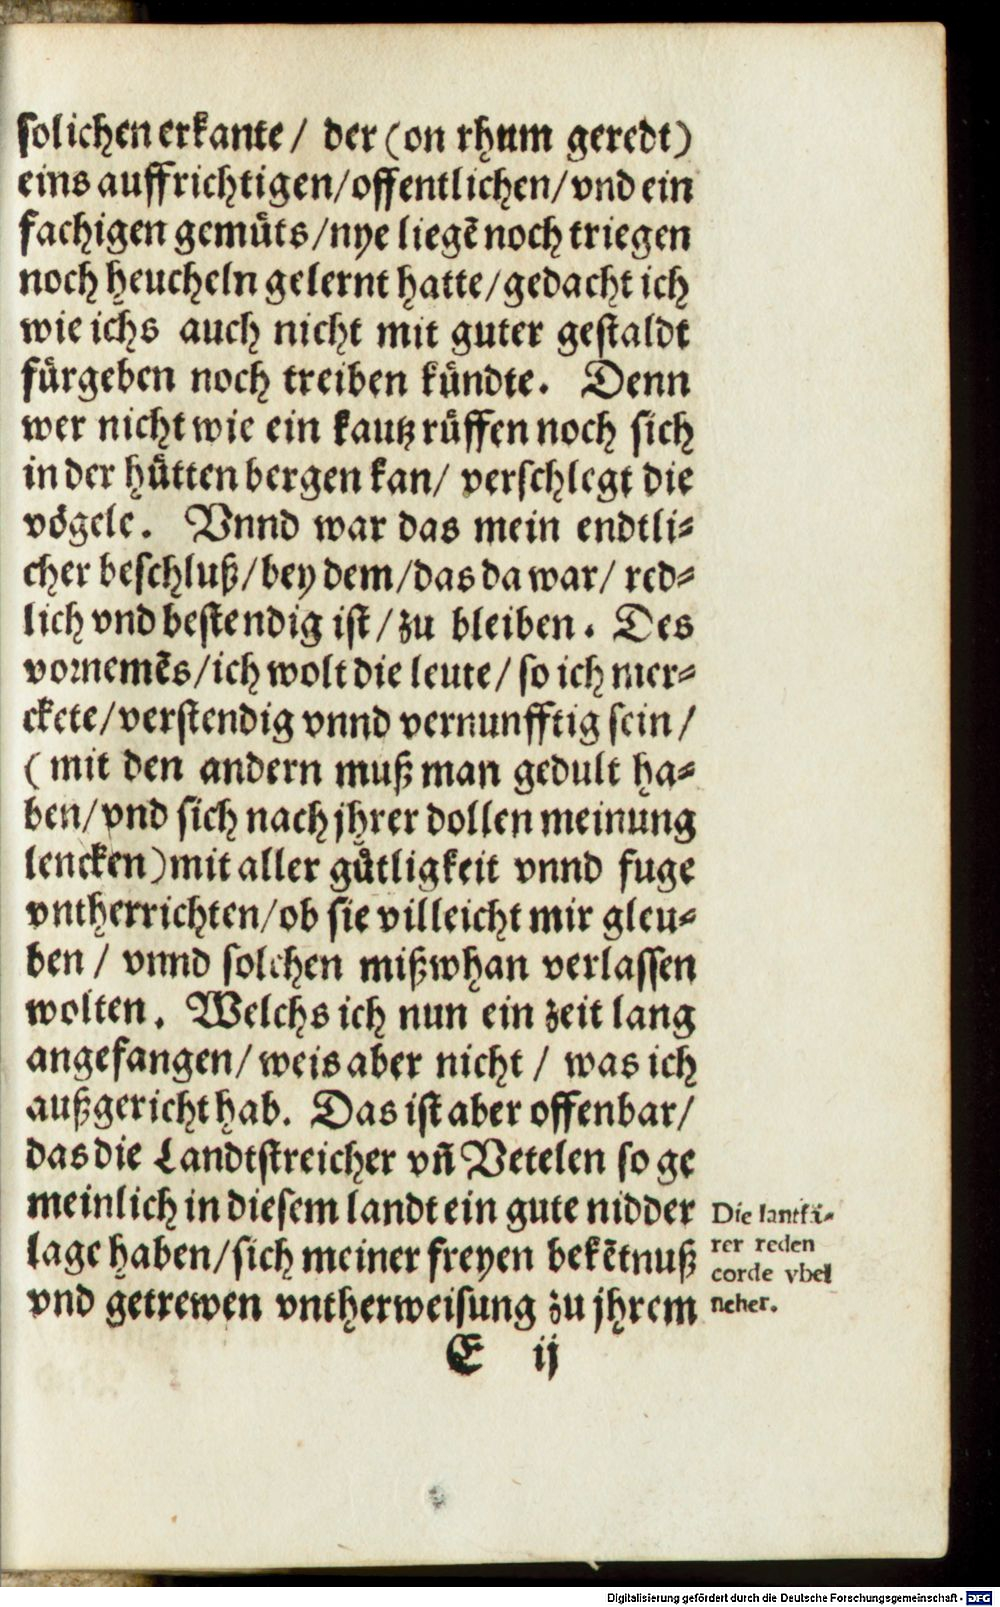 solichen erkante/ der (on rhum geredt)
eins auffrichtigen/offentlichen/vnd ein
fachigen gemuͤts/nye liegẽ noch triegen
noch heucheln gelernt hatte/gedacht ich
wie ichs auch nicht mit guter gestaldt
fuͤrgeben noch treiben kuͤndte. Denn
wer nicht wie ein kautz ruͤffen noch sich
in der huͤtten bergen kan/ verschlegt die
voͤgele. Vnnd war das mein endtli-
cher beschluß/bey dem/das da war/ red-
lich vnd bestendig ist/zu bleiben. Des
vornemẽs/ich wolt die leute/ so ich mer-
ckete/verstendig vnnd vernunfftig sein/
(mit den andern muß man gedult ha-
ben/vnd sich nach jhrer dollen meinung
lencken) mit aller guͤtligkeit vnnd fuge
vntherrichten/ob sie villeicht mir gleu-
ben/ vnnd solchen mißwhan verlassen
wolten. Welchs ich nun ein zeit lang
angefangen/ weis aber nicht/ was ich
außgericht hab. Das ist aber offenbar/
das die Landtstreicher vñ Vetelen so ge
meinlich in diesem landt ein gute nidder
lage haben/sich meiner freyen bekẽtnuß
vnd getrewen vntherweisung zu jhrem
Die
rer reden
corde vbel
neher.
E ij
Digitalisierung gefördert durch die Deutsche Forschungsgemeinschaft - DFG